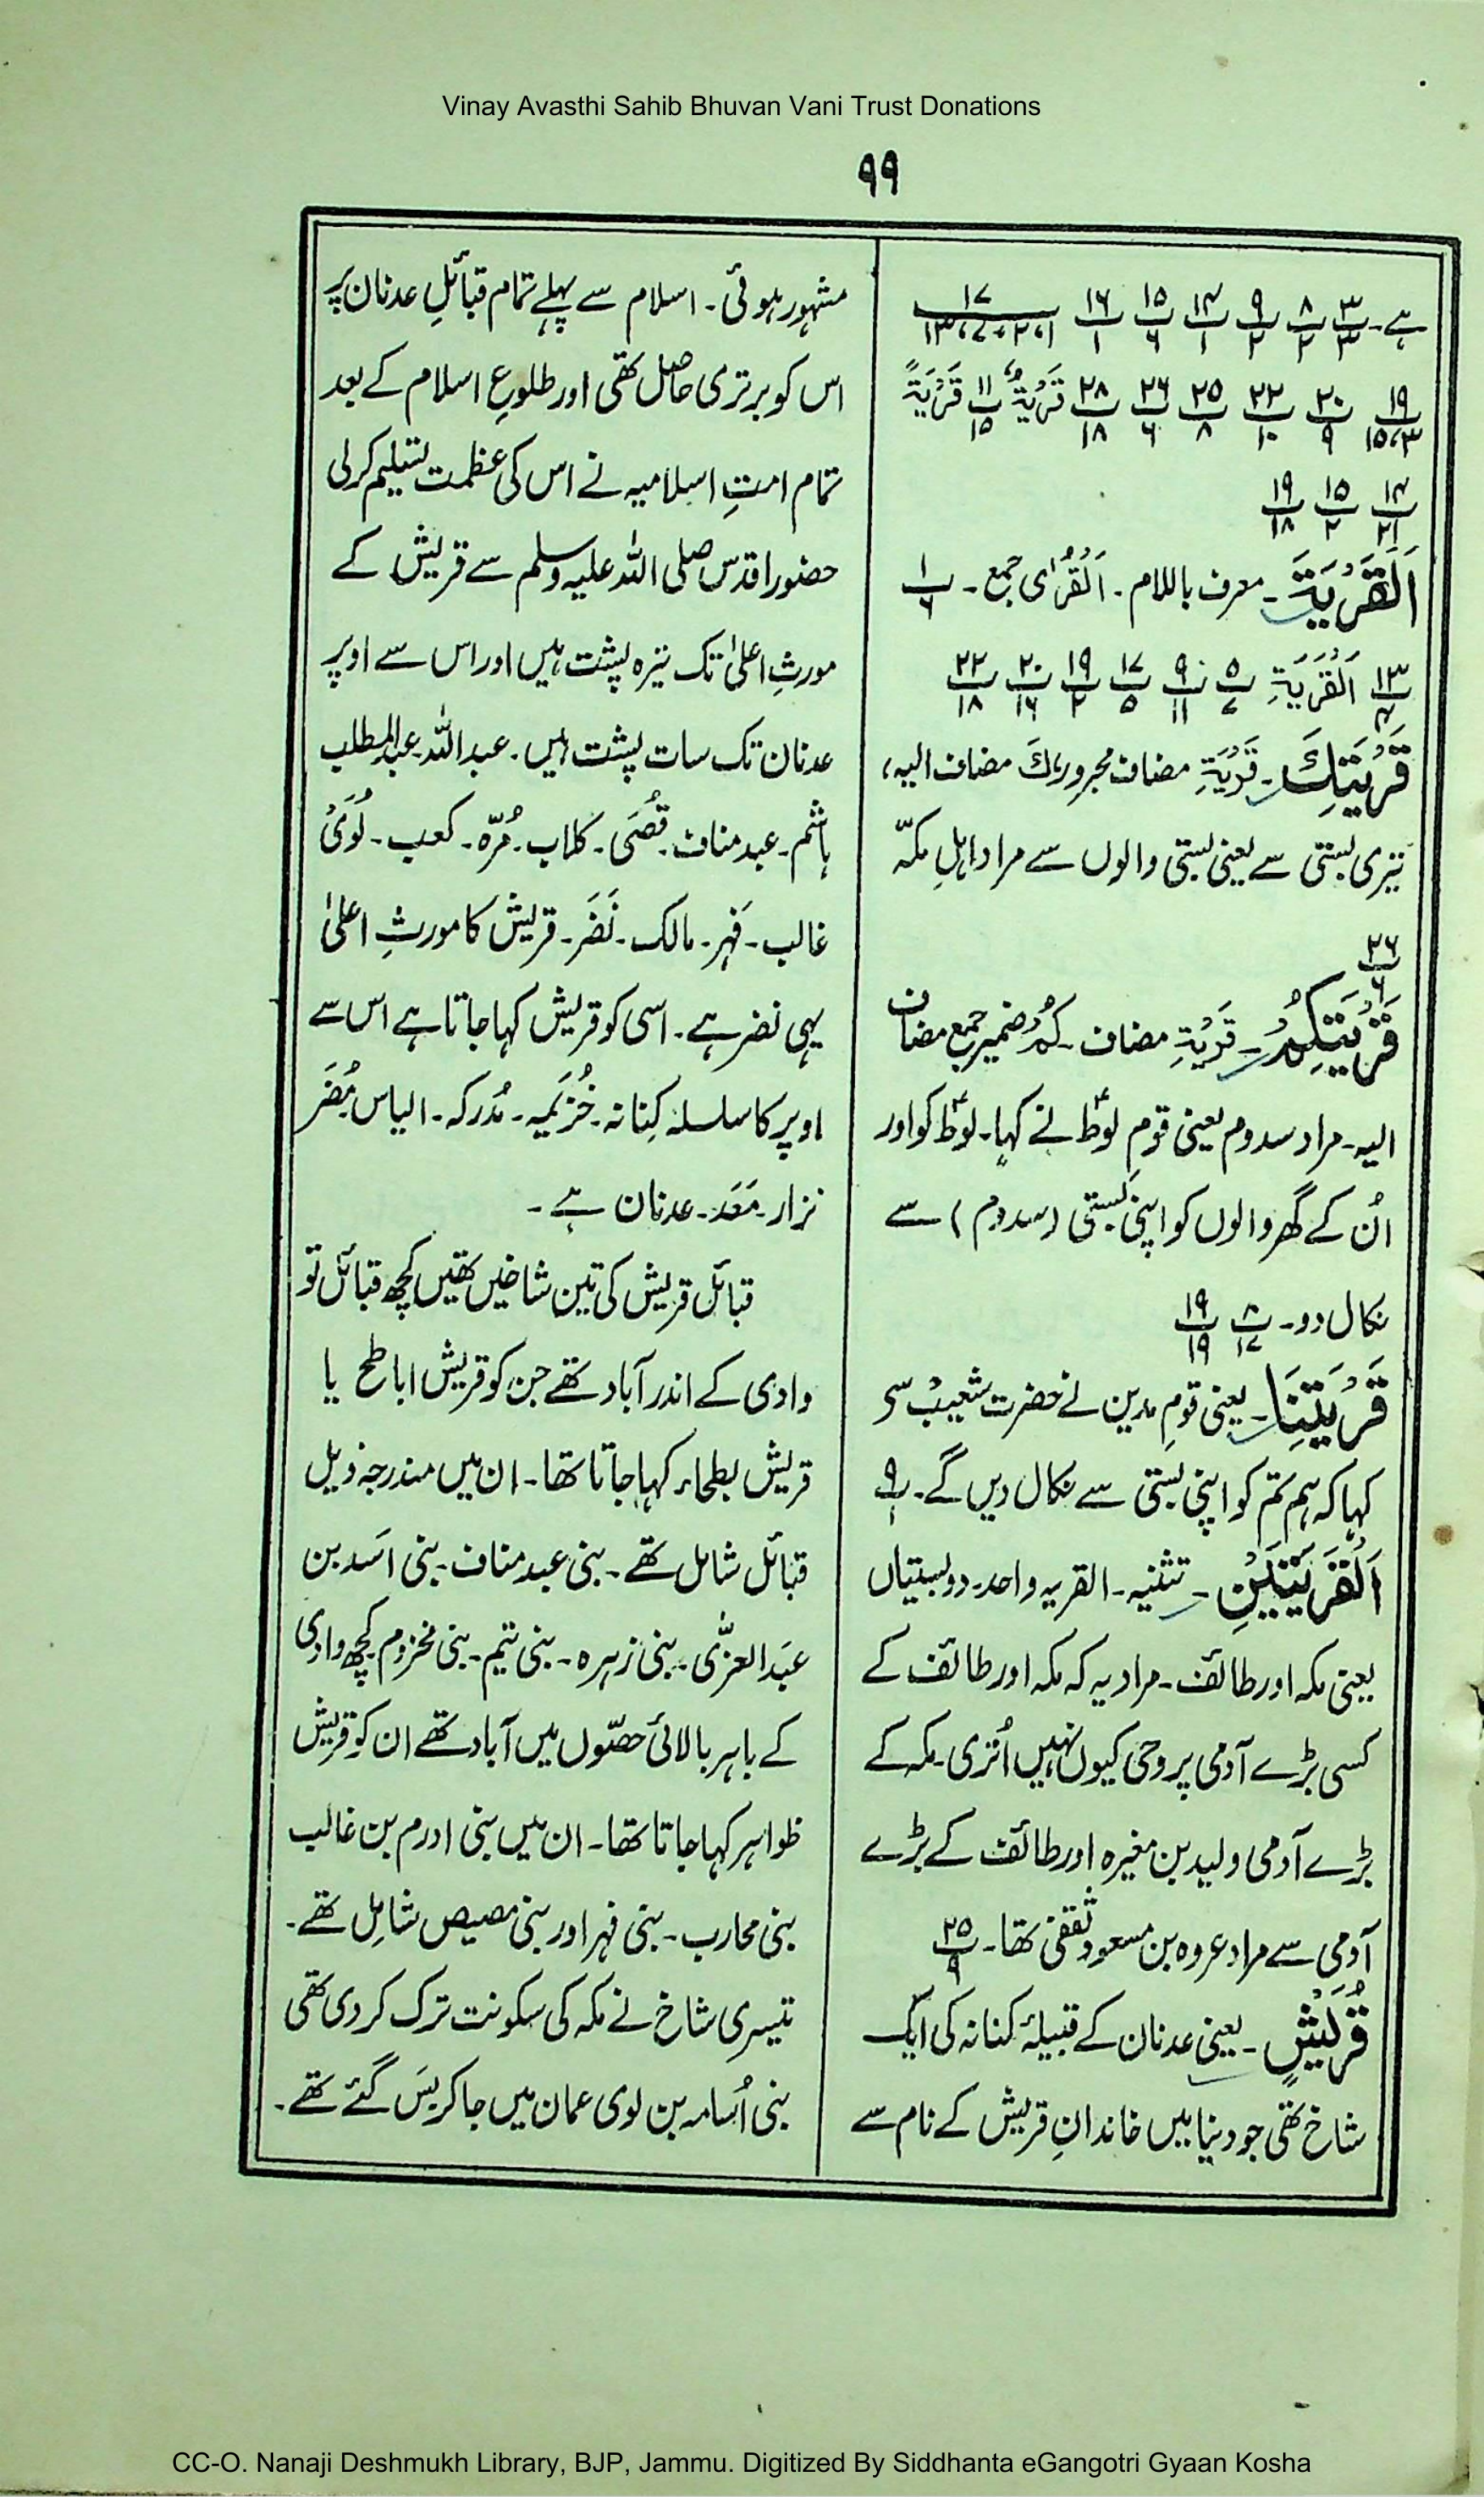 Vinay Avasthi Sahib Bhuvan Vani Trust Donations
۹۹
ہے۔ ۳/۳ ۸/۲ ۹/۲ ۱۴/۱ ۱۵/۶ ۱۶/۱ ۱۷/۱،۲،۷،۱۳
۱۹/۳،۱۵ ۲۰/۹ ۲۲/۱۰ ۲۵/۸ ۲۶/۶ ۲۸/۱۸ قَرْیَۃٌ ۱۱/۱۵ قَرْیَۃً
۱۴/۲۱ ۱۵/۲ ۱۹/۱۸
اَلْقَرْیَۃَ۔ معرف باللام۔ اَلْقُرٰی جمع۔ ۱/۶
۱۳/۴ اَلْقَرْیَۃِ ۵/۷ ۹/۱۱ ۱۷/۵ ۱۹/۲ ۲۰/۱۶ ۲۲/۱۸
قَرْیَتِكَ۔ قَرْیَۃِ مضاف مجرور، كَ مضاف الیہ،
تیری بستی سے یعنی بستی والوں سے مراد اہلِ مکّہ
۲۶/۶
قَرْیَتِكُمْ۔ قَرْیَۃِ مضاف۔ کُمْ ضمیر جمع مضاف
الیہ۔ مراد سدوم یعنی قومِ لوطؑ نے کہا۔ لوطؑ کو اور
اُن کے گھر والوں کو اپنی بستی (سدوم) سے
نکال دو۔ ۸/۱۷ ۱۹/۱۹
قَرْیَتِنَا۔ یعنی قومِ مدین نے حضرت شعیبؑ سے
کہا کہ ہم تم کو اپنی بستی سے نکال دیں گے۔ ۹/۱
اَلْقَرْیَتَیْنِ۔ تثنیہ۔ القریہ واحد۔ دو بستیاں
یعنی مکہ اور طائف۔ مراد یہ کہ مکہ اور طائف کے
کسی بڑے آدمی پر وحی کیوں نہیں اُتری۔ مکہ کے
بڑے آدمی ولید بن مغیرہ اور طائف کے بڑے
آدمی سے مراد عروہ بن مسعود ثقفی تھا۔ ۲۵/۹
قُرَیْشٍ۔ یعنی عدنان کے قبیلۂ کنانہ کی ایک
شاخ تھی جو دنیا میں خاندانِ قریش کے نام سے
مشہور ہوئی۔ اسلام سے پہلے تمام قبائلِ عدنان پر
اس کو برتری حاصل تھی اور طلوعِ اسلام کے بعد
تمام امتِ اسلامیہ نے اس کی عظمت تسلیم کر لی
حضور اقدس صلی اللہ علیہ وسلم سے قریش کے
مورثِ اعلیٰ تک تیرہ پشت ہیں اور اس سے اوپر
عدنان تک سات پشت ہیں۔ عبداللہ۔ عبدالمطلب
ہاشم۔ عبد مناف۔ قُصَی۔ کلاب۔ مُرّہ۔ کعب۔ لُوَیْ
غالب۔ فہر۔ مالک۔ نَضَر۔ قریش کا مورثِ اعلیٰ
یہی نضر ہے۔ اسی کو قریش کہا جاتا ہے اس سے
اوپر کا سلسلہ کِنانہ۔ خُزَیمہ۔ مُدرکہ۔ الیاس مُضَر
نزار۔ مَعَد۔ عدنان ہے۔
قبائل قریش کی تین شاخیں تھیں کچھ قبائل تو
وادی کے اندر آباد تھے جن کو قریش اباطح یا
قریش بطحاء کہا جاتا تھا۔ ان میں مندرجہ ذیل
قبائل شامل تھے۔ بنی عبد مناف۔ بنی اسَد بن
عبَدالعزّٰی۔ بنی زہرہ۔ بنی تیم۔ بنی مخزوم کچھ وادی
کے باہر بالائی حصّوں میں آباد تھے ان کو قریش
ظواہر کہا جاتا تھا۔ ان میں بنی ادرم بن غالب
بنی محارب۔ بنی فہر اور بنی مصیص شامل تھے۔
تیسری شاخ نے مکہ کی سکونت ترک کر دی تھی
بنی اُسامہ بن لوی عمان میں جا کر بس گئے تھے۔
CC-O. Nanaji Deshmukh Library, BJP, Jammu. Digitized By Siddhanta eGangotri Gyaan Kosha